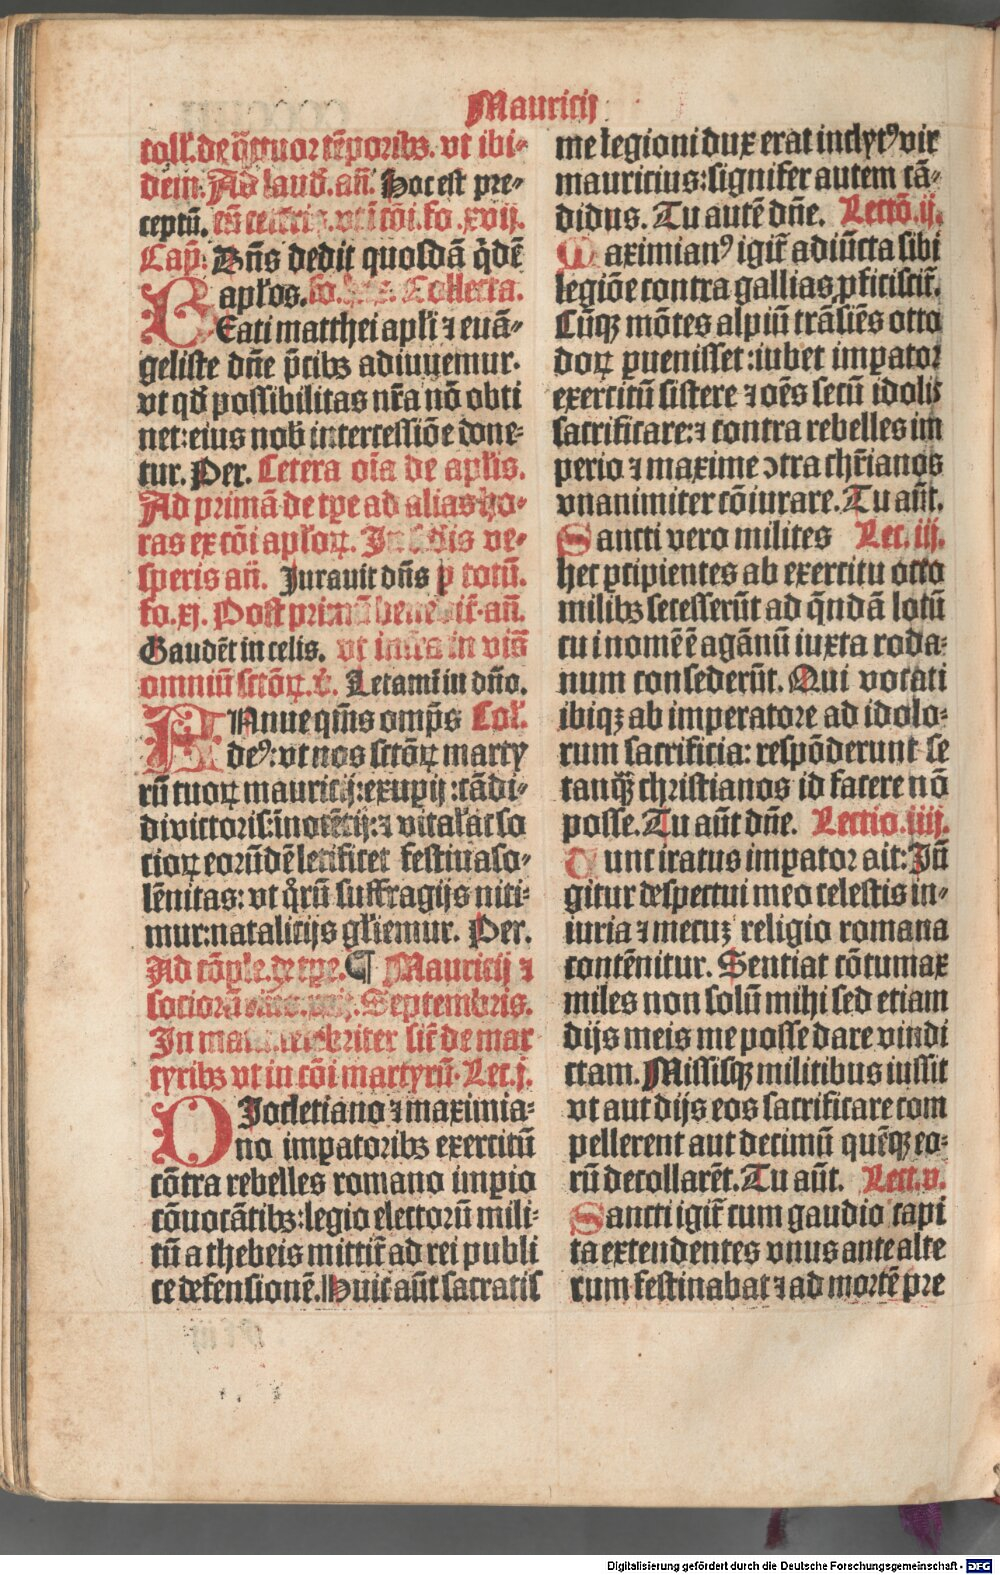 Mauricij
coll̄. de q̄ttuor tēporibꝫ. vt ibi⸗
dem. Ad laud̄. añ. Hoc est pre⸗
ceptū. cū ceteris. vt ī cōi. fo. xvij.
Cap̄. Dn̄s dedit quosdā q̄dē
aplos. Collecta.
BEati matthei apl̄i ⁊ euā⸗
geliste dn̄e p̄cibꝫ adiuuemur.
vt qd̄ possibilitas nr̄a nō obti
net: eius nob̄ intercessiōe done⸗
tur. Per. Cetera oīa de apl̄is.
Ad primā de tꝑe ad alias ho⸗
ras ex cōi aploꝝ. In ve⸗
speris añ. Jurauit dn̄s ꝑ totū.
fo. xj. Post primū benedict̄ añ.
Gaudēt in celis. vt infra in vis̄
omniū sctōꝝ. v̄. Letamī in dn̄o.
ANnue qm̄s omp̄s Col̄.
deꝰ: vt nos sctōꝝ marty
rū tuoꝝ mauricij: exupij: cādi⸗
di victoris: īnocētij: ⁊ vitalač so
cioꝝ eorūdē letificet festiua so⸗
lēnitas: vt q̄rū suffragijs niti⸗
mur: natalicijs gl̄iemur. Per.
Ad cōple. de tꝑe. ¶ Mauricij ⁊
sociorū Septembris.
In celebriter sic̄ de mar
tyribꝫ vt in cōi martyrū. Lec. j.
DJocletiano ⁊ maximia⸗
no imꝑatoribꝫ exercitū
cōtra rebelles romano imꝑio
cōuocātibꝫ: legio electorū mili⸗
tū a thebeis mittit̄ ad rei publi
ce defensionē. Huic aūt sacratis
me legioni dux erat inclytꝰ vir
mauricius: signifer autem cā⸗
didus. Tu autē dn̄e. Lectō. ij.
Maximianꝰ igit̄ adiūcta sibi
legiōe contra gallias ꝓficiscit̄.
Cūqꝫ mōtes alpiū trāsiēs octo
doꝝ ꝑuenisset: iubet imꝑator
exercitū sistere ⁊ oēs secū idolis
sacrificare: ⁊ contra rebelles im
perio ⁊ maxime ↄtra chr̄ianos
vnanimiter cōiurare. Tu aūt.
Sancti vero milites Lec. iij.
hec ꝑcipientes ab exercitu octo
milibꝫ secesserūt ad q̄ndā locū
cui nomē ē agānū iuxta roda⸗
num consederūt. Qui vocati
ibiqꝫ ab imperatore ad idolo⸗
rum sacrificia: respōderunt se
tanqꝫ̄ christianos id facere nō
posse. Tu aūt dn̄e. Lectio. iiij.
Tunc iratus imꝑator ait: Jū
gitur despectui meo celestis in⸗
iuria ⁊ mecuꝫ religio romana
contēnitur. Sentiat cōtumax
miles non solū mihi sed etiam
dijs meis me posse dare vindi
ctam. Missisqꝫ militibus iussit
vt aut dijs eos sacrificare com
pellerent aut decimū quēqꝫ eo⸗
rū decollarēt. Tu aūt. Lect. v.
Sancti igit̄ cum gaudio capi
ta extendentes vnus ante alte
rum festinabat ⁊ ad mortē pre
Digitalisierung gefördert durch die Deutsche Forschungsgemeinschaft - DFG